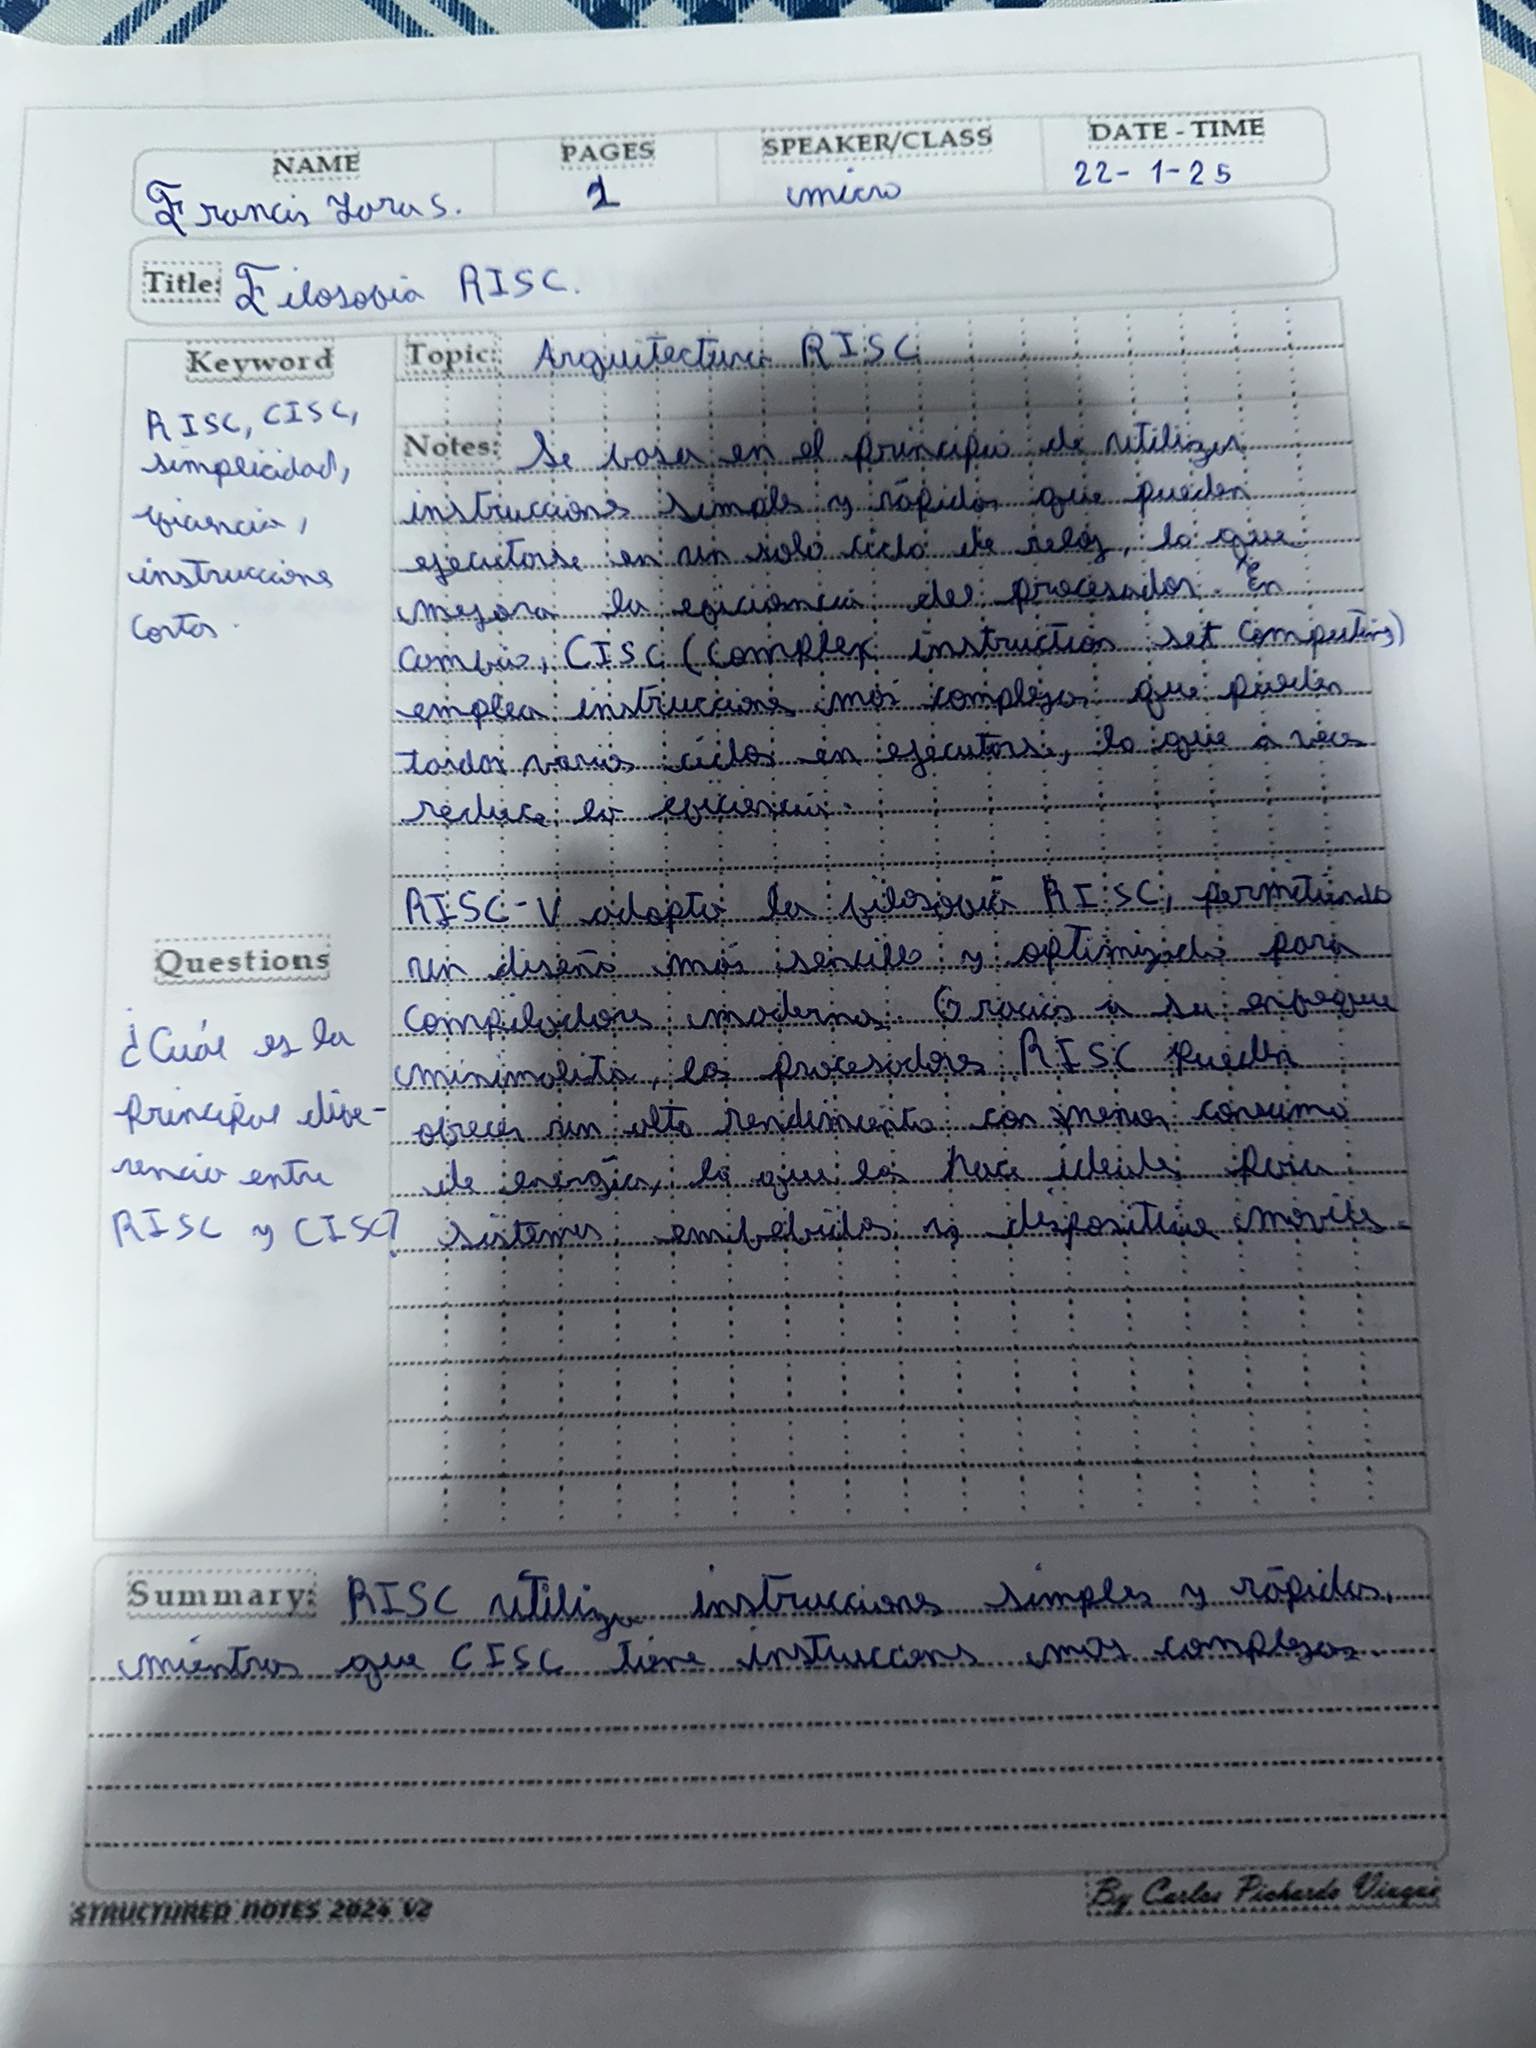 NAME
PAGES
SPEAKER/CLASS
DATE - TIME
Francis
1
micro
22-1-25
Title: Filosofia RISC.
Keyword
RISC, CISC,
simplicidad,
eficiencia,
instrucciones
cortas.
Questions
¿Cuál es la
principal dife-
rencia entre
RISC y CISC?
Topic: Arquitectura RISC
Notes: Se basa en el principio de utilizar
instrucciones simples y rápidas que pueden
ejecutarse en un solo ciclo de reloj, lo que
mejora la eficiencia del procesador. En
cambio, CISC (complex instruction set computing)
emplea instrucciones más complejas que pueden
tardar varios ciclos en ejecutarse, lo que a veces
reduce la eficiencia.
RISC-V adopta la filosofía RISC, permitiendo
un diseño más sencillo y optimizado para
compiladores modernos. Gracias a su enfoque
minimalista, los procesadores RISC pueden
ofrecer un alto rendimiento con menos consumo
de energía, lo que los hace ideales para
sistemas embebidos y dispositivos moviles.
Summary: RISC utiliza instrucciones simples y rápidas,
mientras que CISC tiene instruccions más complejas.
STRUCTURED NOTES 2024 V2
By Carlos Pichardo Viuque